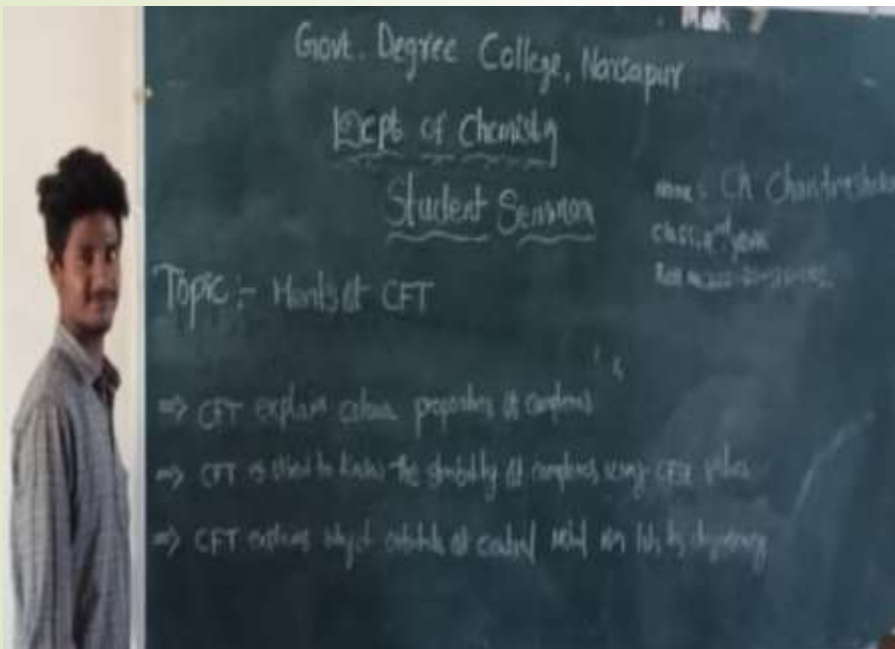 Govt. Degree College, Narsapur
Dept of Chemistry
Student Seminar
Name : Ch Chandrashekar
Class : year
Topic :- Merits of CFT
=> CFT explain colour properties of complexes
=> CFT is used to know the stability of complexes using CFSE values
=> CFT explains why d orbitals of central metal ion its degeneracy